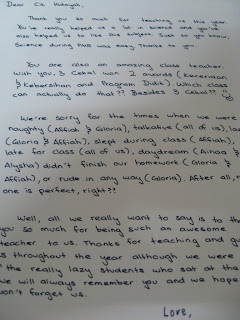 Dear Cik Hidayah,
Thank you so much for teaching us this year.
You've really helped us a lot in science and you've
also helped us to like this subject. Just so you know,
Science during PMR was easy. Thanks to you.
You are also an amazing class teacher.
With you, 3 Cekal won 2 awards (Keceriaan
& Kebersihan and Program Didik). Which class
can actually do that?? Besides 3 Cekal?? !!
We're sorry for the times when we were
naughty (Affiah & Gloria), talkative (all of us), lazy
(Gloria & Affiah), slept during class (Affiah),
late for class (all of us), daydream (Ainaa &
Alysha) didn't finish our homework (Gloria &
Affiah), or rude in any way (Gloria). After all, no
one is perfect, right?!
Well, all we really want to say is to
you so much for being such an awesome
teacher to us. Thanks for teaching and
us throughout the year although we were
the really lazy students who sat at the
we will always remember you and we hope
won't forget us.
Love,